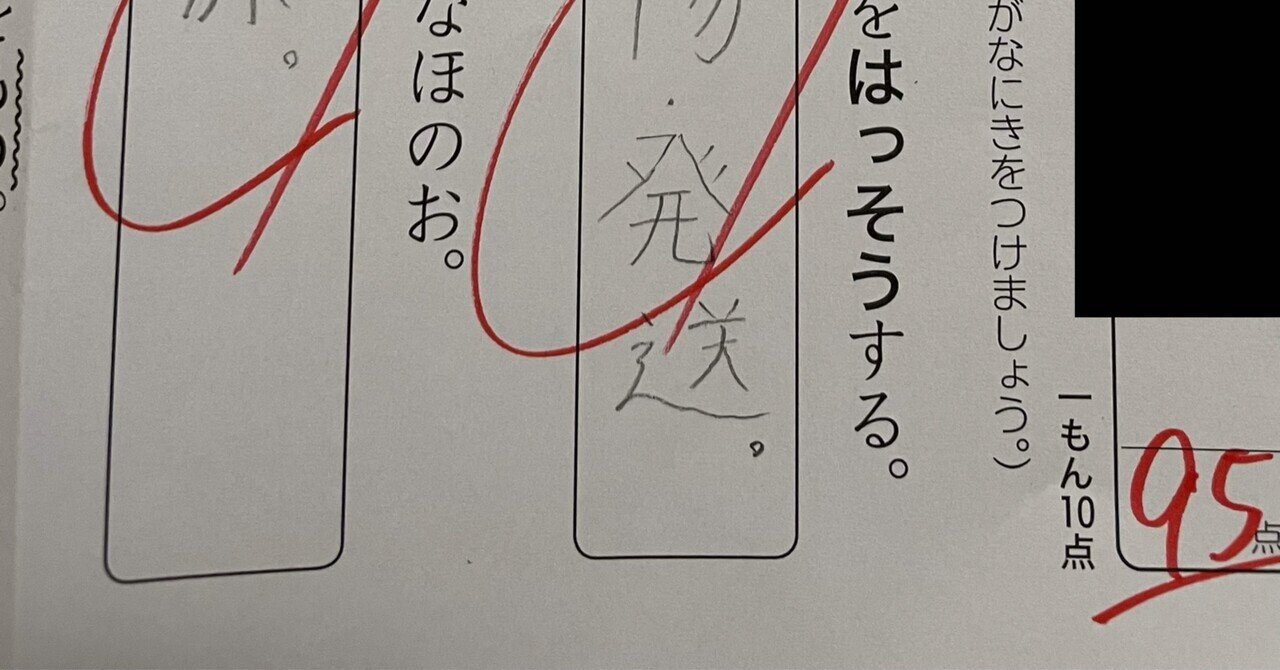 がなにきをつけましょう。）
一もん10点
95点
をはっそうする。
発送。
なほのお。
。